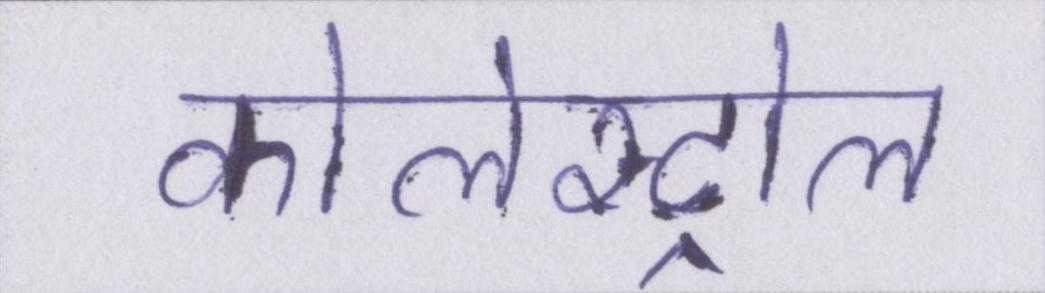 कोलेस्ट्रोल